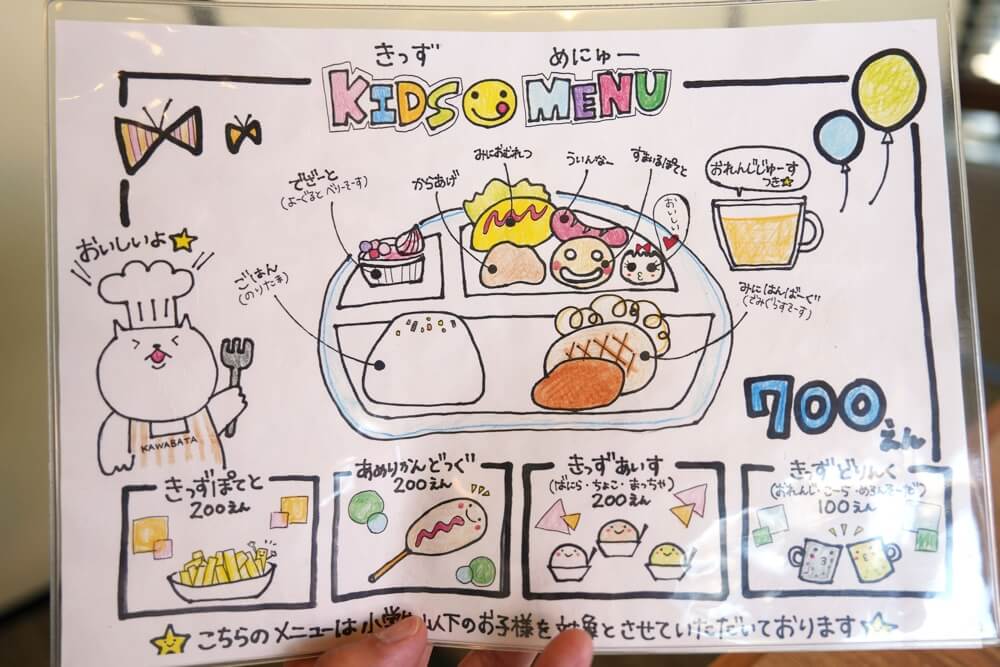 きっず めにゅー
KIDS MENU
でざーと
(よーぐると べりーそーす)
からあげ
みにおむれつ
ういんなー
すまいるぽてと
おいしい
おれんじじゅーす
つき
おいしいよ
ごはん
(のりたま)
みにはんばーぐ
(でみぐらすそーす)
KAWABATA
700えん
きっずぽてと
200えん
あめりかんどっぐ
200えん
きっずあいす
(ばにら・ちょこ・まっちゃ)
200えん
きっずどりんく
(おれんじ・こーら・めろんそーだ)
100えん
こちらのメニューは小学 以下のお子様を対象とさせていただいております